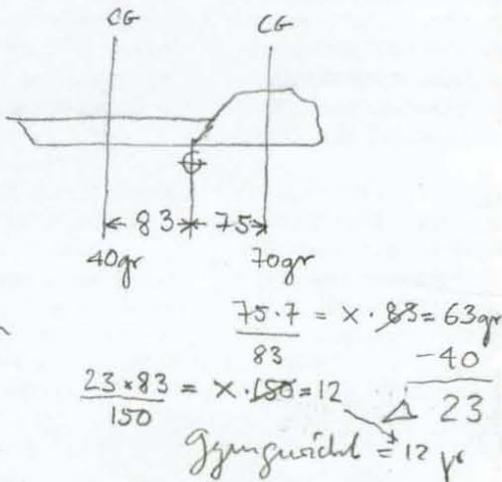 CG CG
83 75
40gr 70gr
75·7 / 83 = x · 83 = 63gr
-40
23×83 / 150 = x · 150 = 12
△ 23
= 12 gr